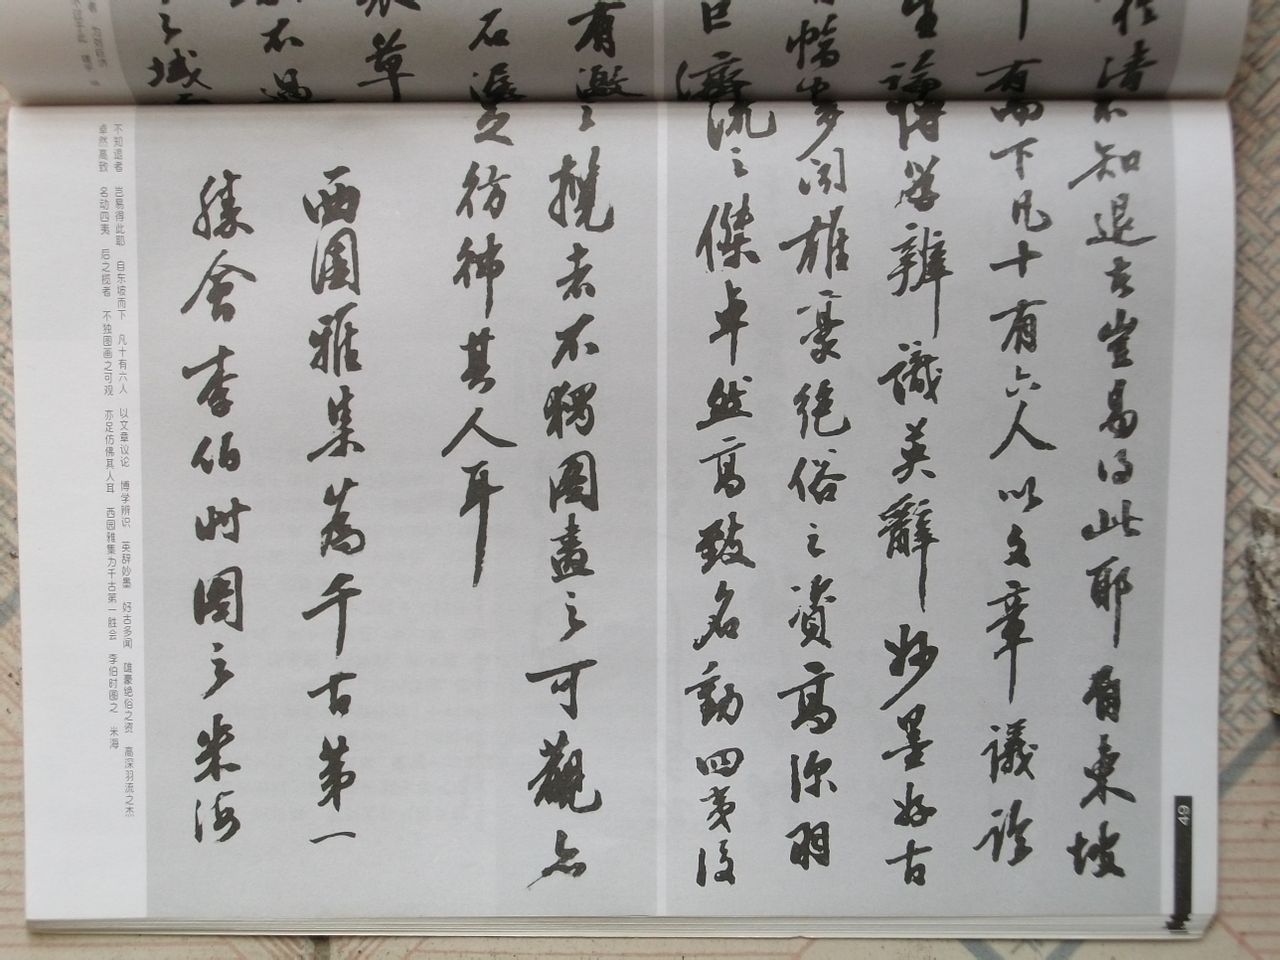 不知退者豈易得此耶自東坡
而下凡十有六人以文章議論
博學辨識英辭妙墨好古
多聞雄豪絕俗之資高深羽
流之傑卓然高致名動四夷後
之攬者不獨圖畫之可觀亦
足彷彿其人耳
西園雅集為千古第一
勝會李伯時圖之米海
不知退者 岂易得此耶 自东坡而下 凡十有六人 以文章议论 博学辨识 英辞妙墨 好古多闻 雄豪绝俗之资 高深羽流之杰
卓然高致 名动四夷 后之揽者 不独图画之可观 亦足仿佛其人耳 西园雅集为千古第一胜会 李伯时图之 米海
49